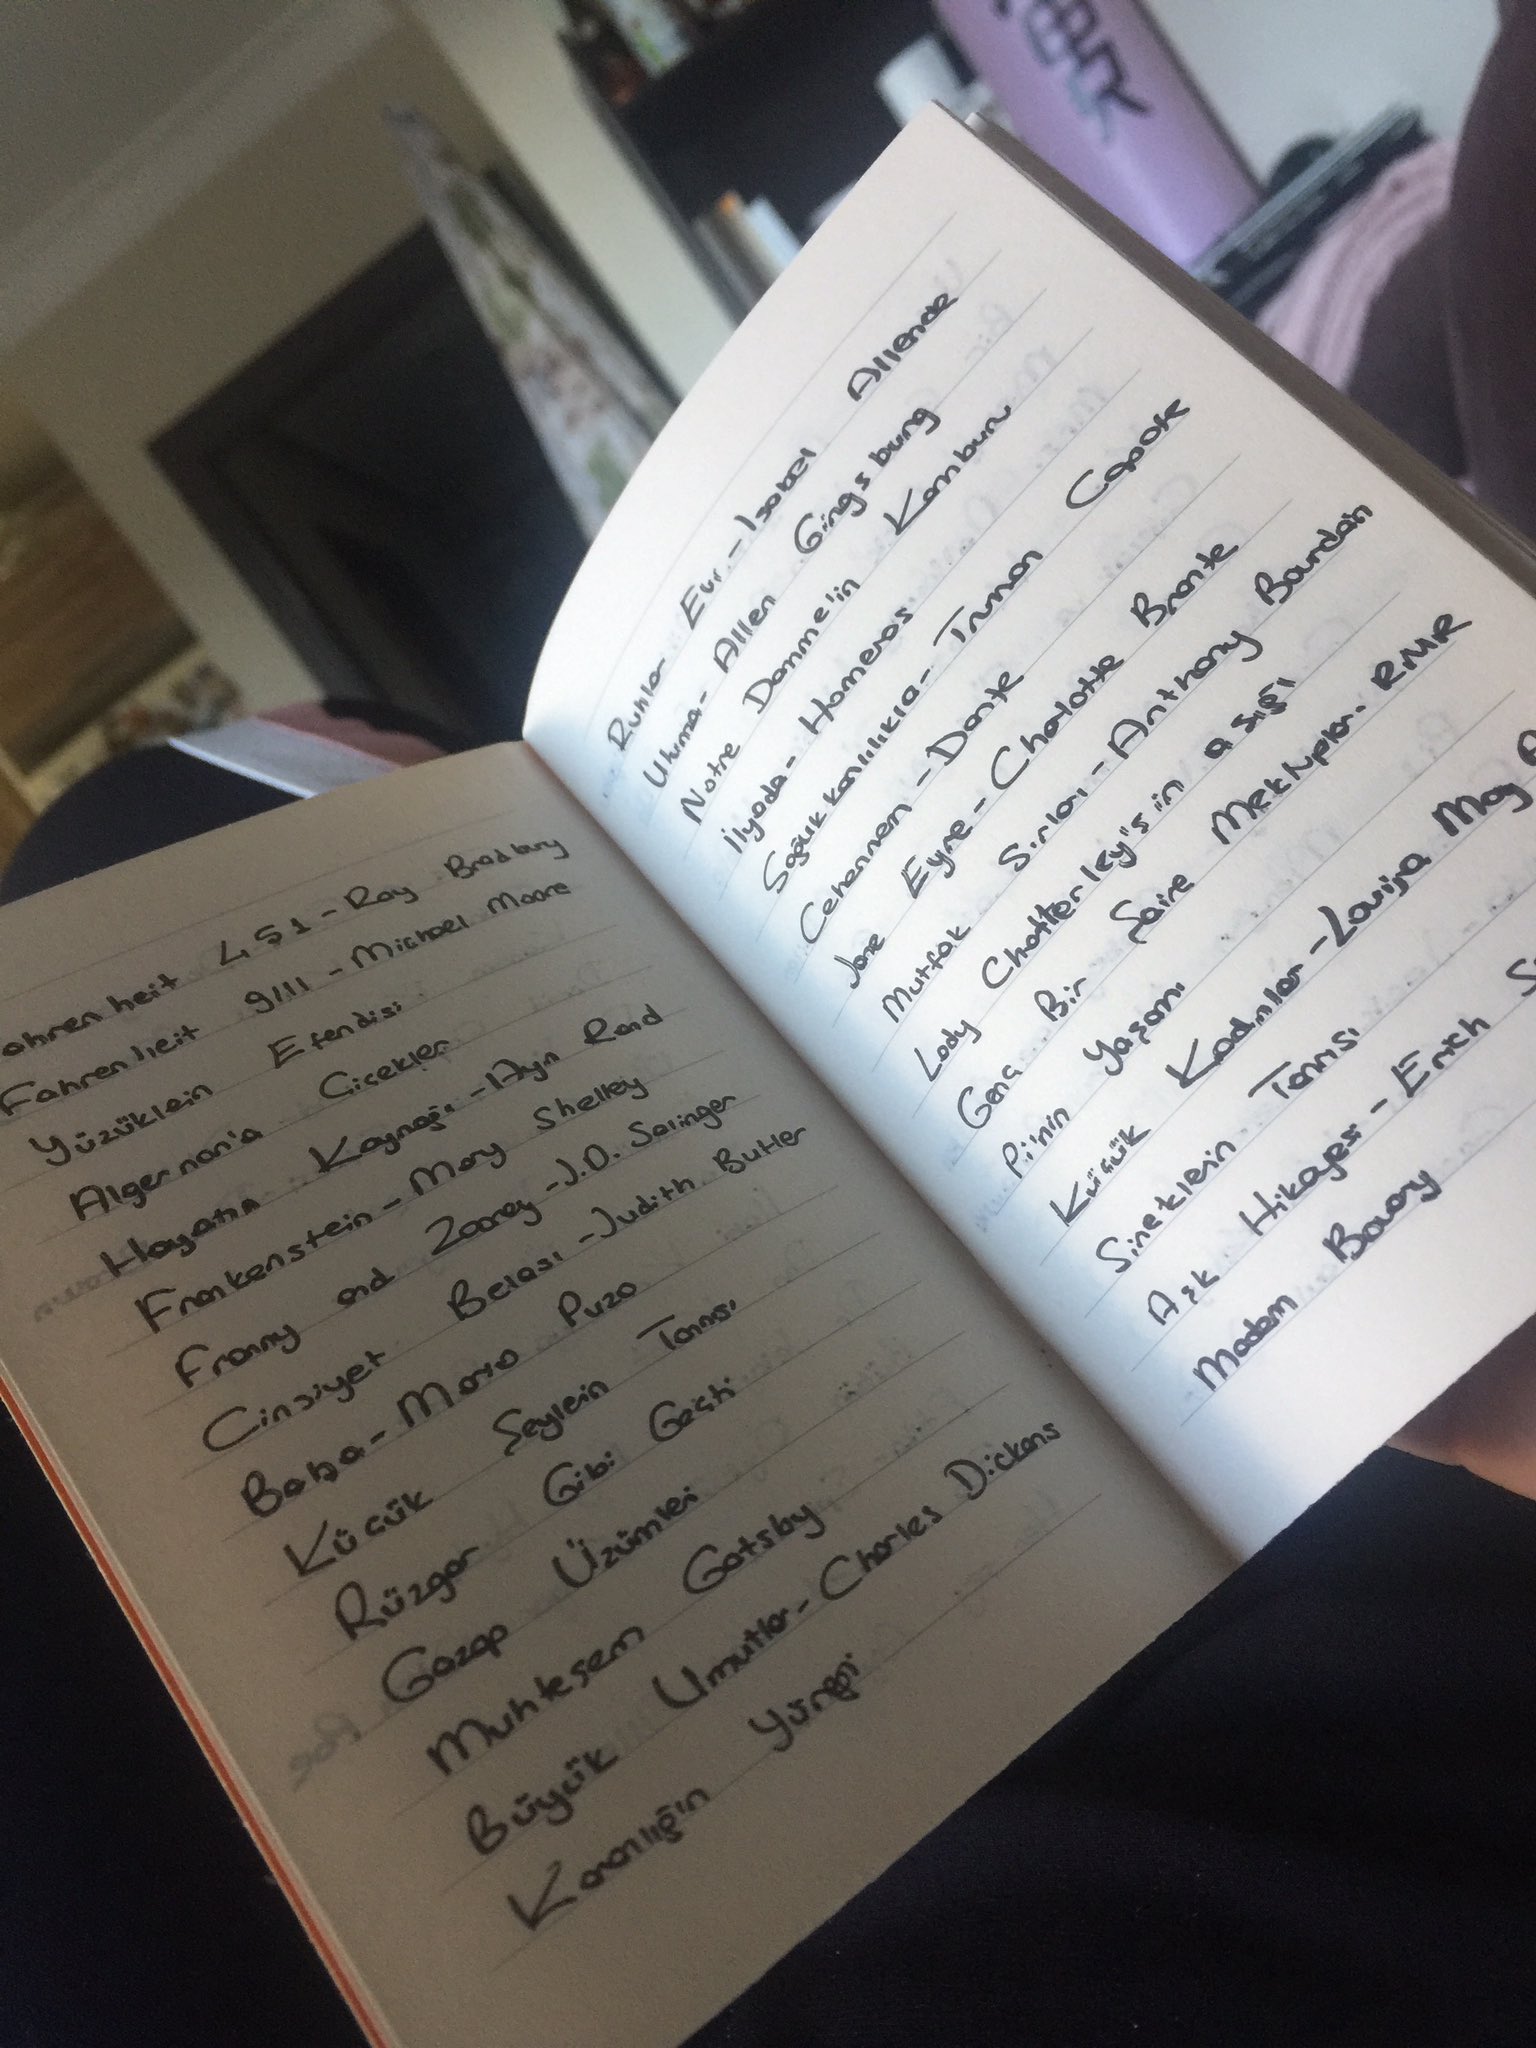 ahrenheit 451 - Ray Bradbury
Fahrenheit 9/11 - Michael Moore
Yüzüklein Efendisi
Algernon'a Çiçekler
Hayatın Kaynağı - Ayn Rand
Frankenstein - Mary Shelley
Franny and Zooey - J.D. Salinger
Cinsiyet Belası - Judith Butler
Baba - Mario Puzo
Küçük Şeylein Tanrısı
Rüzgar Gibi Geçti
Gazap Üzümlei
Muhteşem Gatsby
Büyük Umutlar - Charles Dickens
Karanlığın Yüreği
Ruhlar Evi - Isabel Allende
Uluma - Allen Gingsburg
Notre Damme'in Kamburu
İlyada - Homeros
Soğukkanlılıkla - Truman Capote
Cehennem - Dante
Jane Eyre - Charlotte Bronte
Mutfak Sırları - Anthony Bourdain
Lady Chatterley's'in aşığı
Genç Bir Şaire Mektuplar. RMR
Pi'nin Yaşamı
Küçük Kadınlar - Louisa May A
Sineklein Tanrısı
Aşk Hikayesi - Erich S
Madam Bovary